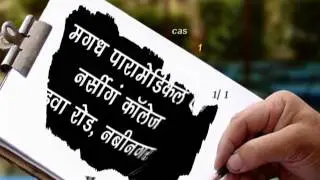 cas
1
मगध पारामेडिकल
1/1
नर्सीगं कॉलेज
रोड, नबीनगर